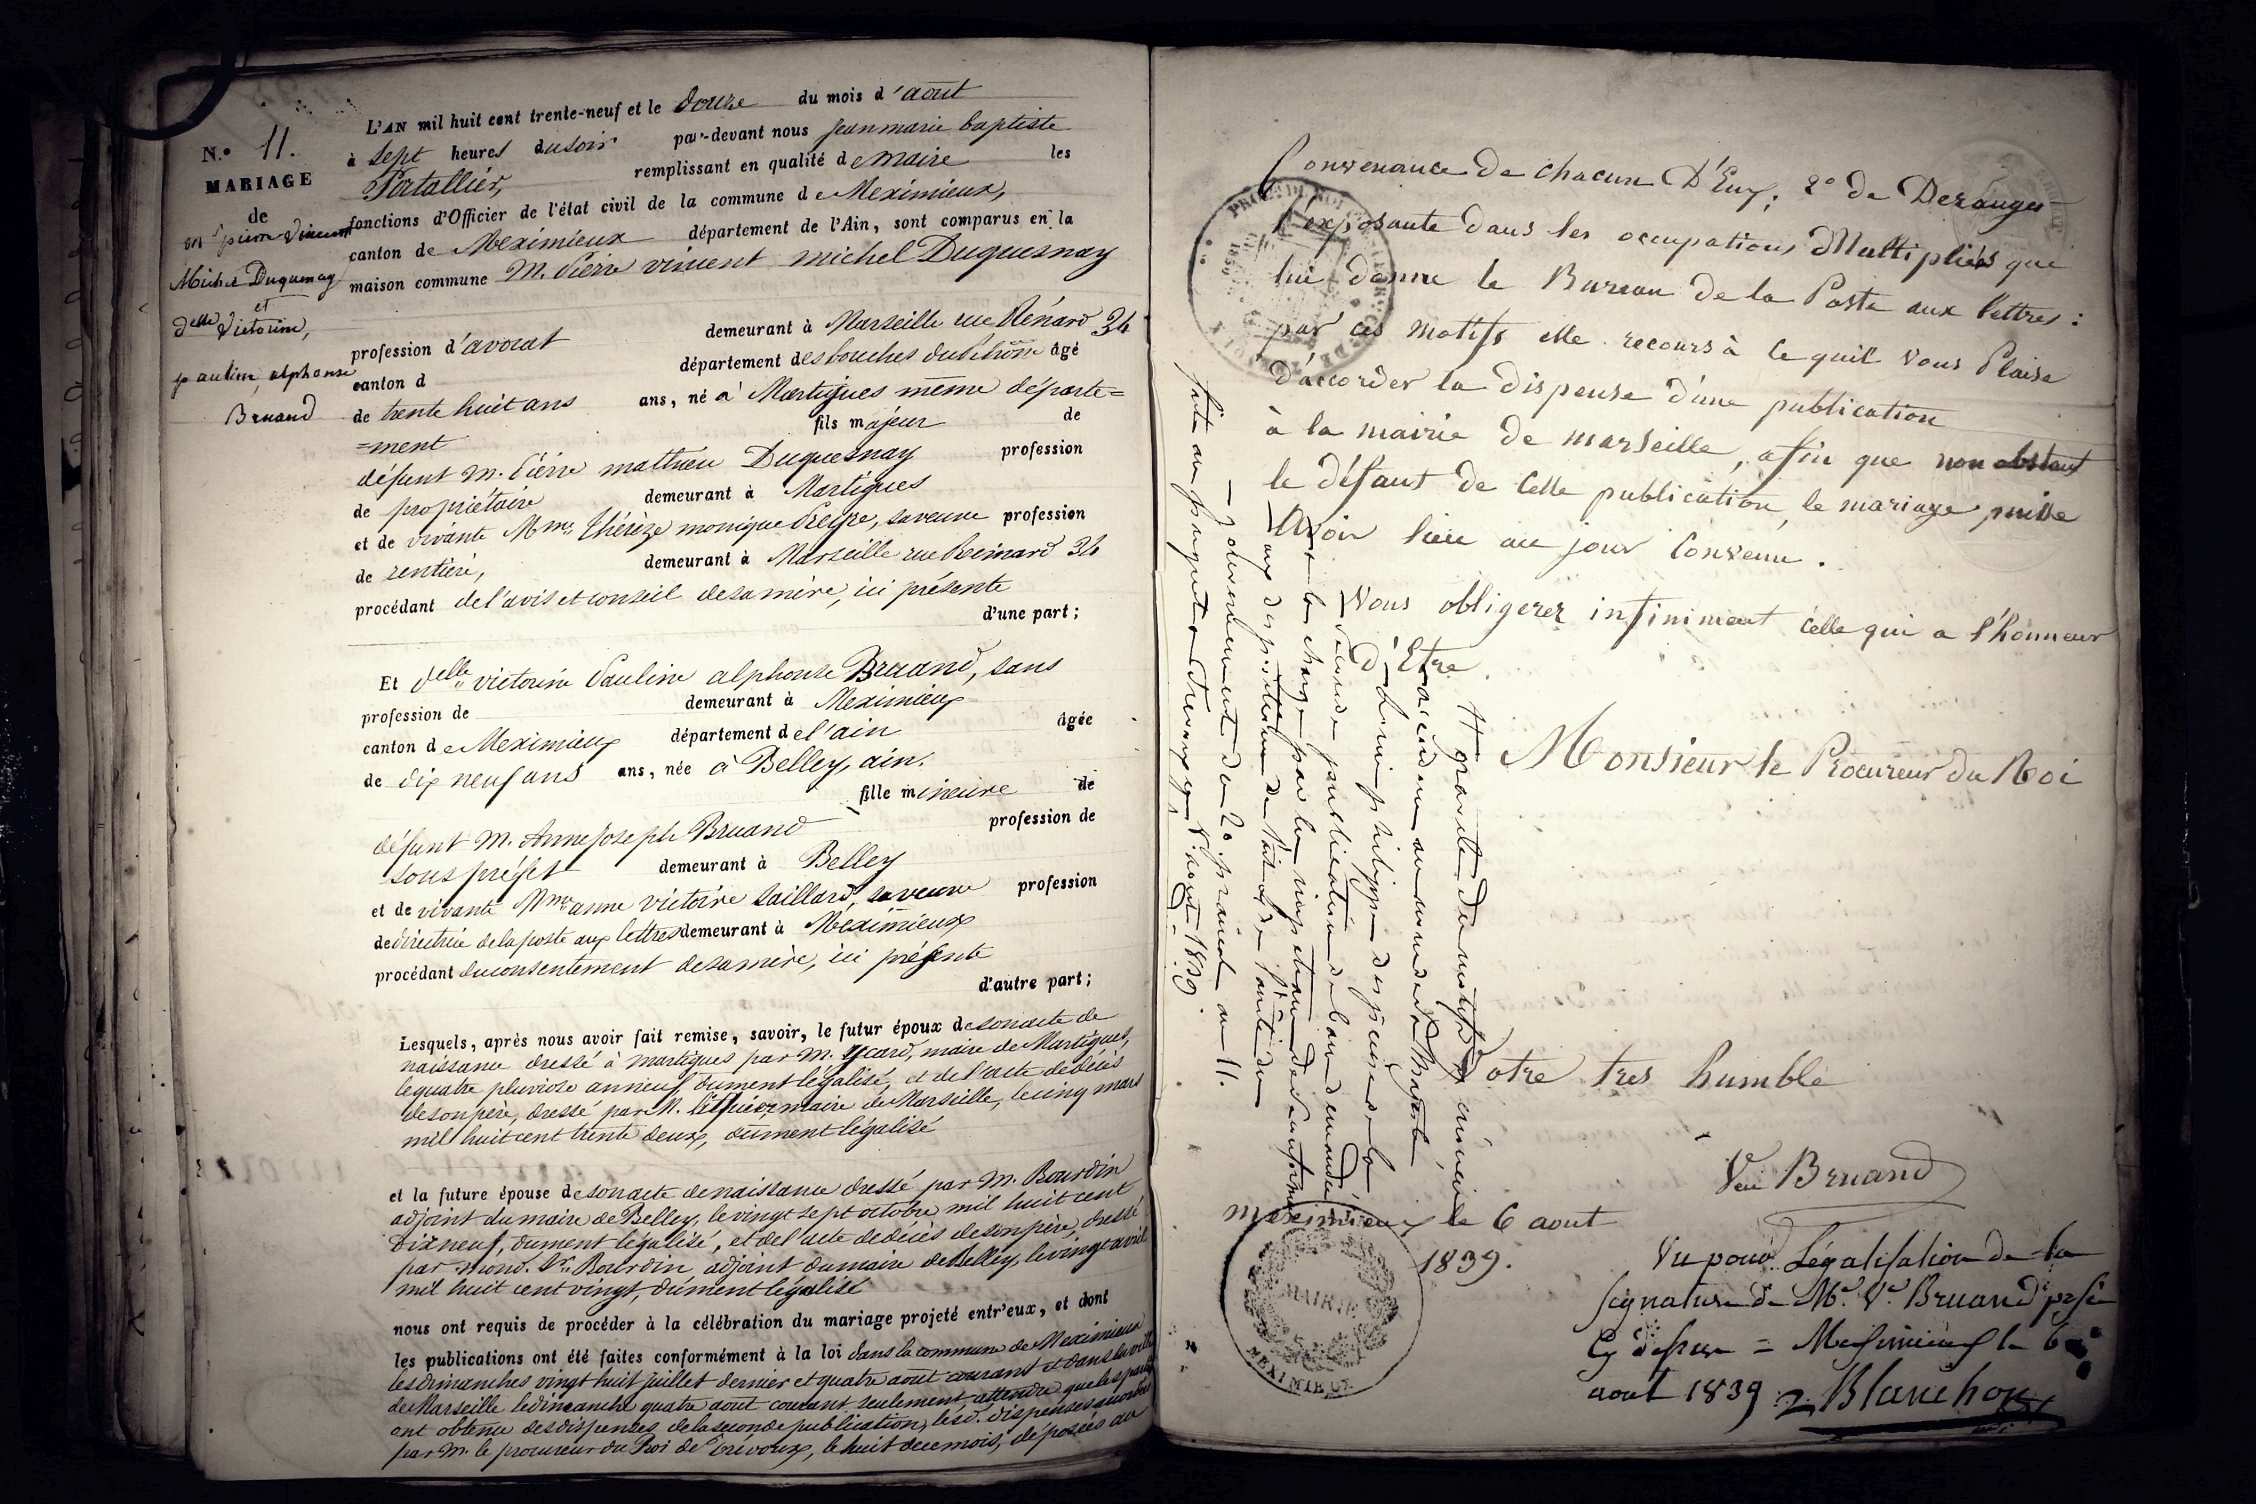 N.° 11.
MARIAGE
de
Mr pierre Vincent
Michel Duquesnay
et
delle Victorine,
pauline, alphonse
Bruand
L'AN mil huit cent trente-neuf et le Douze du mois d'août
à sept heures du soir par-devant nous jean marie baptiste
Portallier, remplissant en qualité de maire les
fonctions d'Officier de l'état civil de la commune de Meximieux,
canton de Meximieux département de l'Ain, sont comparus en la
maison commune M. Pierre vincent michel Duquesnay
profession d'avocat demeurant à Marseille rue Rénard 34
canton d département des bouches du Rhône âgé
de trente huit ans ans, né à Martigues même départe=
=ment fils majeur de
défunt M. Pierre mathieu Duquesnay profession
de propriétaire demeurant à Martigues
et de vivante Mme Thérèze monique , sa veuve profession
de rentière, demeurant à Marseille rue Reinard 34
procédant de l'avis et conseil de sa mère, ici présente
d'une part;
Et delle victorine Pauline alphonse Bruand, sans
profession de demeurant à Meximieux
canton de Meximieux département de l'ain âgée
de dix neuf ans ans, née à Belley, ain.
fille mineure de
défunt M. Anne joseph Bruand profession de
sous préfet demeurant à Belley
et de vivante Mme anne victoire Saillard, sa veuve profession
de directrice de la poste aux lettres demeurant à Méximieux
procédant du consentement de sa mère, ici présente
d'autre part;
Lesquels, après nous avoir fait remise, savoir, le futur époux de son acte de
naissance dressé à martigues par M. Ycard, maire de Martigues,
le quatre pluviose an neuf dument légalisé, et de l'acte de décès
de son père, dressé par M. maire de Marseille, le cinq mars
mil huit cent trente deux, dûment légalisé
et la future épouse de son acte de naissance dressé par M. Bourdin
adjoint du maire de Belley, le vingt sept octobre mil huit cent
dix neuf, dument légalisé, et de l'acte de décès de son père, dressé
par mond. Sr. Bourdin adjoint du maire de Belley, le vingt avril
mil huit cent vingt, dûment légalisé
nous ont requis de procéder à la célébration du mariage projeté entr'eux, et dont
les publications ont été faites conformément à la loi dans la commune de Meximieux
les dimanches vingt huit juillet dernier et quatre août courant et dans la ville
de Marseille le dimanche quatre aout courant seulement, attendu que les parties
ont obtenu des dispenses de la seconde publication, lesd. dispenses accordées
par M. le procureur du Roi de Trévoux, le huit de ce mois, déposées au
Convenance de chacun D'Eux; 2° de Deranger
l'exposante dans les occupations Multipliées que
lui donne le Bureau de la Poste aux lettres:
par ces motifs elle recours à ce quil vous Plaise
d'accorder la dispense d'une publication
à la mairie de marseille, afin que non obstant
le défaut de Celle publication, le mariage puisse
Avoir lieu au jour Convenu.
Vous obligerez infiniment celle qui a l'honneur
D'Etre
Monsieur le Procureur du Roi
Votre tres humble
Ve Bruand
meximieux le 6 aout
1839.
Vu pour Légalisation de la
signature de Me Ve Bruand
Cy dessus = Meximieux le 6
aout 1839 Blanchon
MAIRIE
MEXIMIEUX
Vu gravité des motifs
seconde publication de ban demandée
à la charge par
aux dispositions de l'arrêté du
Gouvernement du 20 prairial an 11.
fait au parquet à Trevoux, 8 aout 1839.